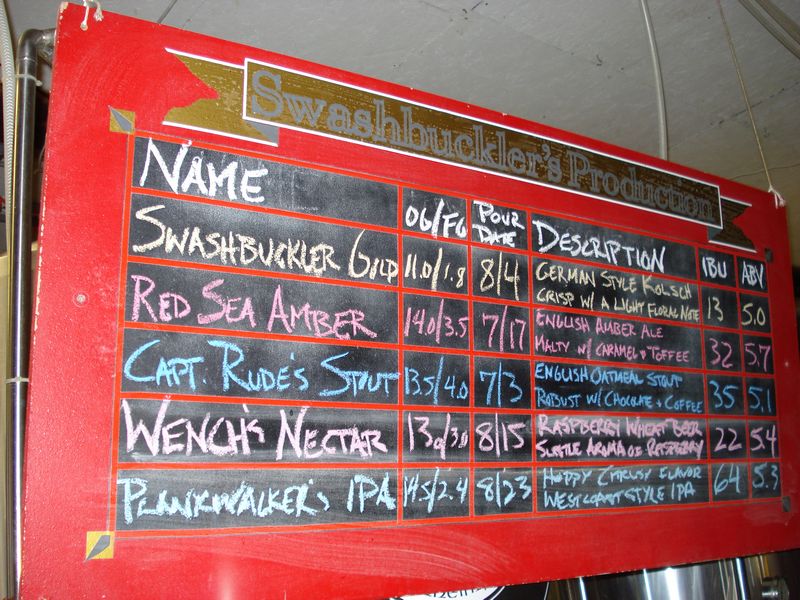 Swashbuckler's Production
NAME OG/FG POUR DATE DESCRIPTION IBU ABV
SWASHBUCKLER GOLD 11.0/1.8 8/4 GERMAN STYLE KOLSCH 13 5.0
CRISP W/ A LIGHT FLORAL NOTE
RED SEA AMBER 14.0/3.5 7/17 ENGLISH AMBER ALE 32 5.7
MALTY W/ CARAMEL + TOFFEE
CAPT. RUDE'S STOUT 13.5/4.0 7/3 ENGLISH OATMEAL STOUT 35 5.1
ROBUST W/ CHOCOLATE + COFFEE
WENCH'S NECTAR 13.0/3.0 8/15 RASPBERRY WHEAT BEER 22 5.4
SUBTLE AROMA OF RASPBERRY
PLANKWALKER'S IPA 14.5/2.4 8/23 HOPPY CITRUSY FLAVOR 64 5.3
WEST COAST STYLE IPA